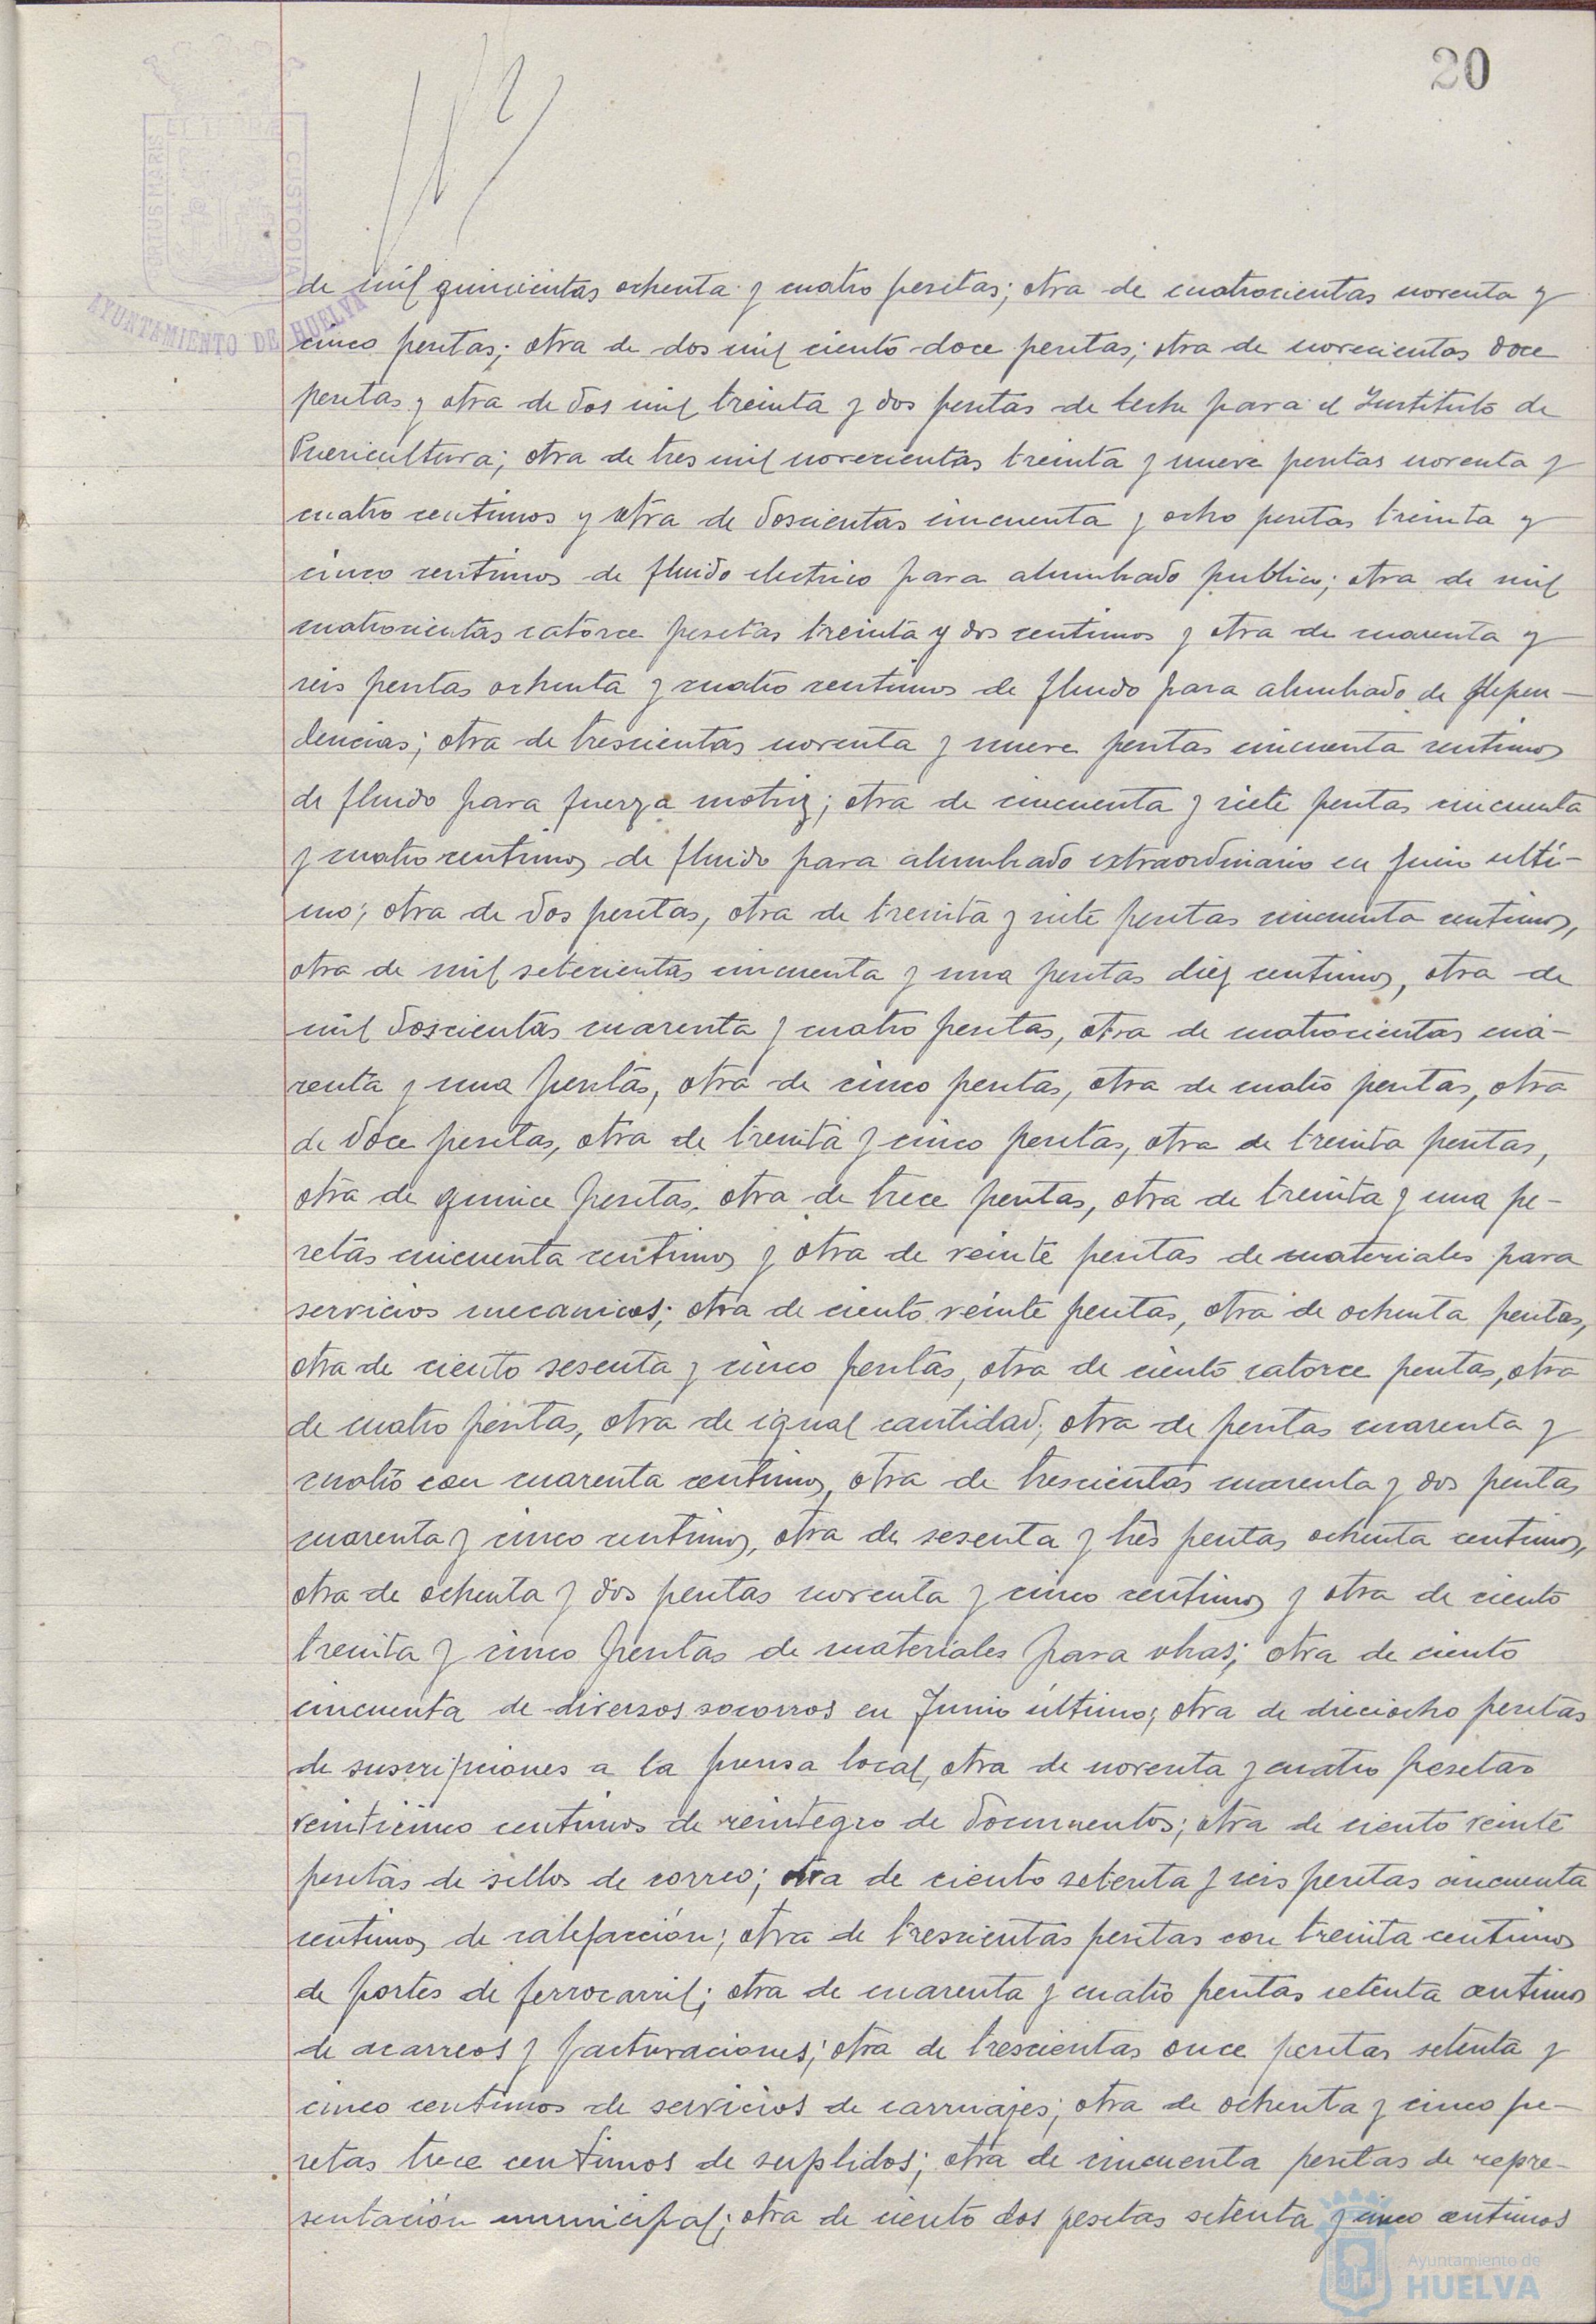 20
PORTUS MARIS ET TERRÆ CUSTODIA
AYUNTAMIENTO DE HUELVA
de mil quinientas ochenta y cuatro pesetas; otra de cuatrocientas noventa y
cinco pesetas; otra de dos mil ciento doce pesetas; otra de novecientas doce
pesetas y otra de dos mil treinta y dos pesetas de leche para el Instituto de
Puericultura; otra de tres mil novecientas treinta y nueve pesetas noventa y
cuatro centimos y otra de doscientas cincuenta y ocho pesetas treinta y
cinco centimos de fluido electrico para alumbrado publico; otra de mil
cuatrocientas catorce pesetas treinta y dos centimos y otra de cuarenta y
seis pesetas ochenta y cuatro centimos de fluido para alumbrado de depen-
dencias; otra de trescientas noventa y nueve pesetas cincuenta centimos
de fluido para fuerza motriz; otra de cincuenta y siete pesetas cincuenta
y cuatro centimos de fluido para alumbrado extraordinario en Junio ulti-
mo; otra de dos pesetas, otra de treinta y siete pesetas cincuenta centimos,
otra de mil setecientas cincuenta y una pesetas diez centimos, otra de
mil doscientas cuarenta y cuatro pesetas, otra de cuatrocientas cua-
renta y una pesetas, otra de cinco pesetas, otra de cuatro pesetas, otra
de doce pesetas, otra de treinta y cinco pesetas, otra de treinta pesetas,
otra de quince pesetas, otra de trece pesetas, otra de treinta y una pe-
setas cincuenta centimos y otra de veinte pesetas de materiales para
servicios mecanicos; otra de ciento veinte pesetas, otra de ochenta pesetas,
otra de ciento sesenta y cinco pesetas, otra de ciento catorce pesetas, otra
de cuatro pesetas, otra de igual cantidad, otra de pesetas cuarenta y
cuatro con cuarenta centimos, otra de trescientas cuarenta y dos pesetas
cuarenta y cinco centimos, otra de sesenta y tres pesetas ochenta centimos,
otra de ochenta y dos pesetas noventa y cinco centimos y otra de ciento
treinta y cinco pesetas de materiales para obras; otra de ciento
cincuenta de diversos socorros en Junio último; otra de dieciocho pesetas
de suscripciones a la prensa local, otra de noventa y cuatro pesetas
veinticinco centimos de reintegro de documentos; otra de ciento veinte
pesetas de sellos de correo; otra de ciento setenta y seis pesetas cincuenta
centimos de calefacción; otra de trescientas pesetas con treinta centimos
de portes de ferrocarril; otra de cuarenta y cuatro pesetas setenta centimos
de acarreos y facturaciones; otra de trescientas once pesetas setenta y
cinco centimos de servicios de carruajes; otra de ochenta y cinco pe-
setas trece centimos de suplidos; otra de cincuenta pesetas de repre-
sentación municipal; otra de ciento dos pesetas setenta y cinco centimos
Ayuntamiento de
HUELVA